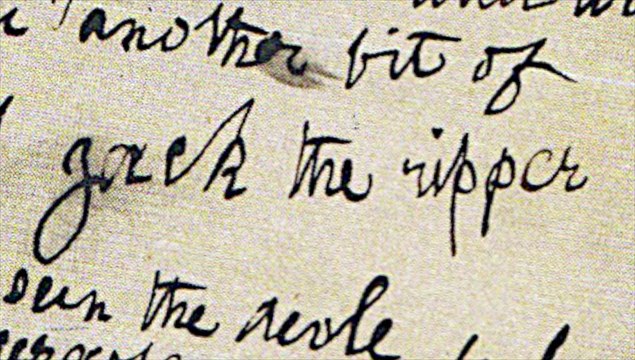 another bit of
jack the ripper
seen the devle